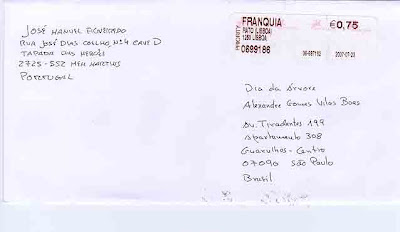 JOSÉ MANUEL FIGUEIREDO
RUA JOSÉ DIAS COELHO, Nº4 CAVE D
TAPADA DAS MERCÊS
2725-552 MEM MARTINS
PORTUGAL
FRANQUIA
RATO LISBOA
1250 LISBOA
0699186
PRIORITY
€0,75
2007-07-23
Dia da Árvore
Alexandre Gomes Vilas Boas
Av. Tiradentes 199
Apartamento 308
Guarulhos - Centro
07090 São Paulo
Brasil